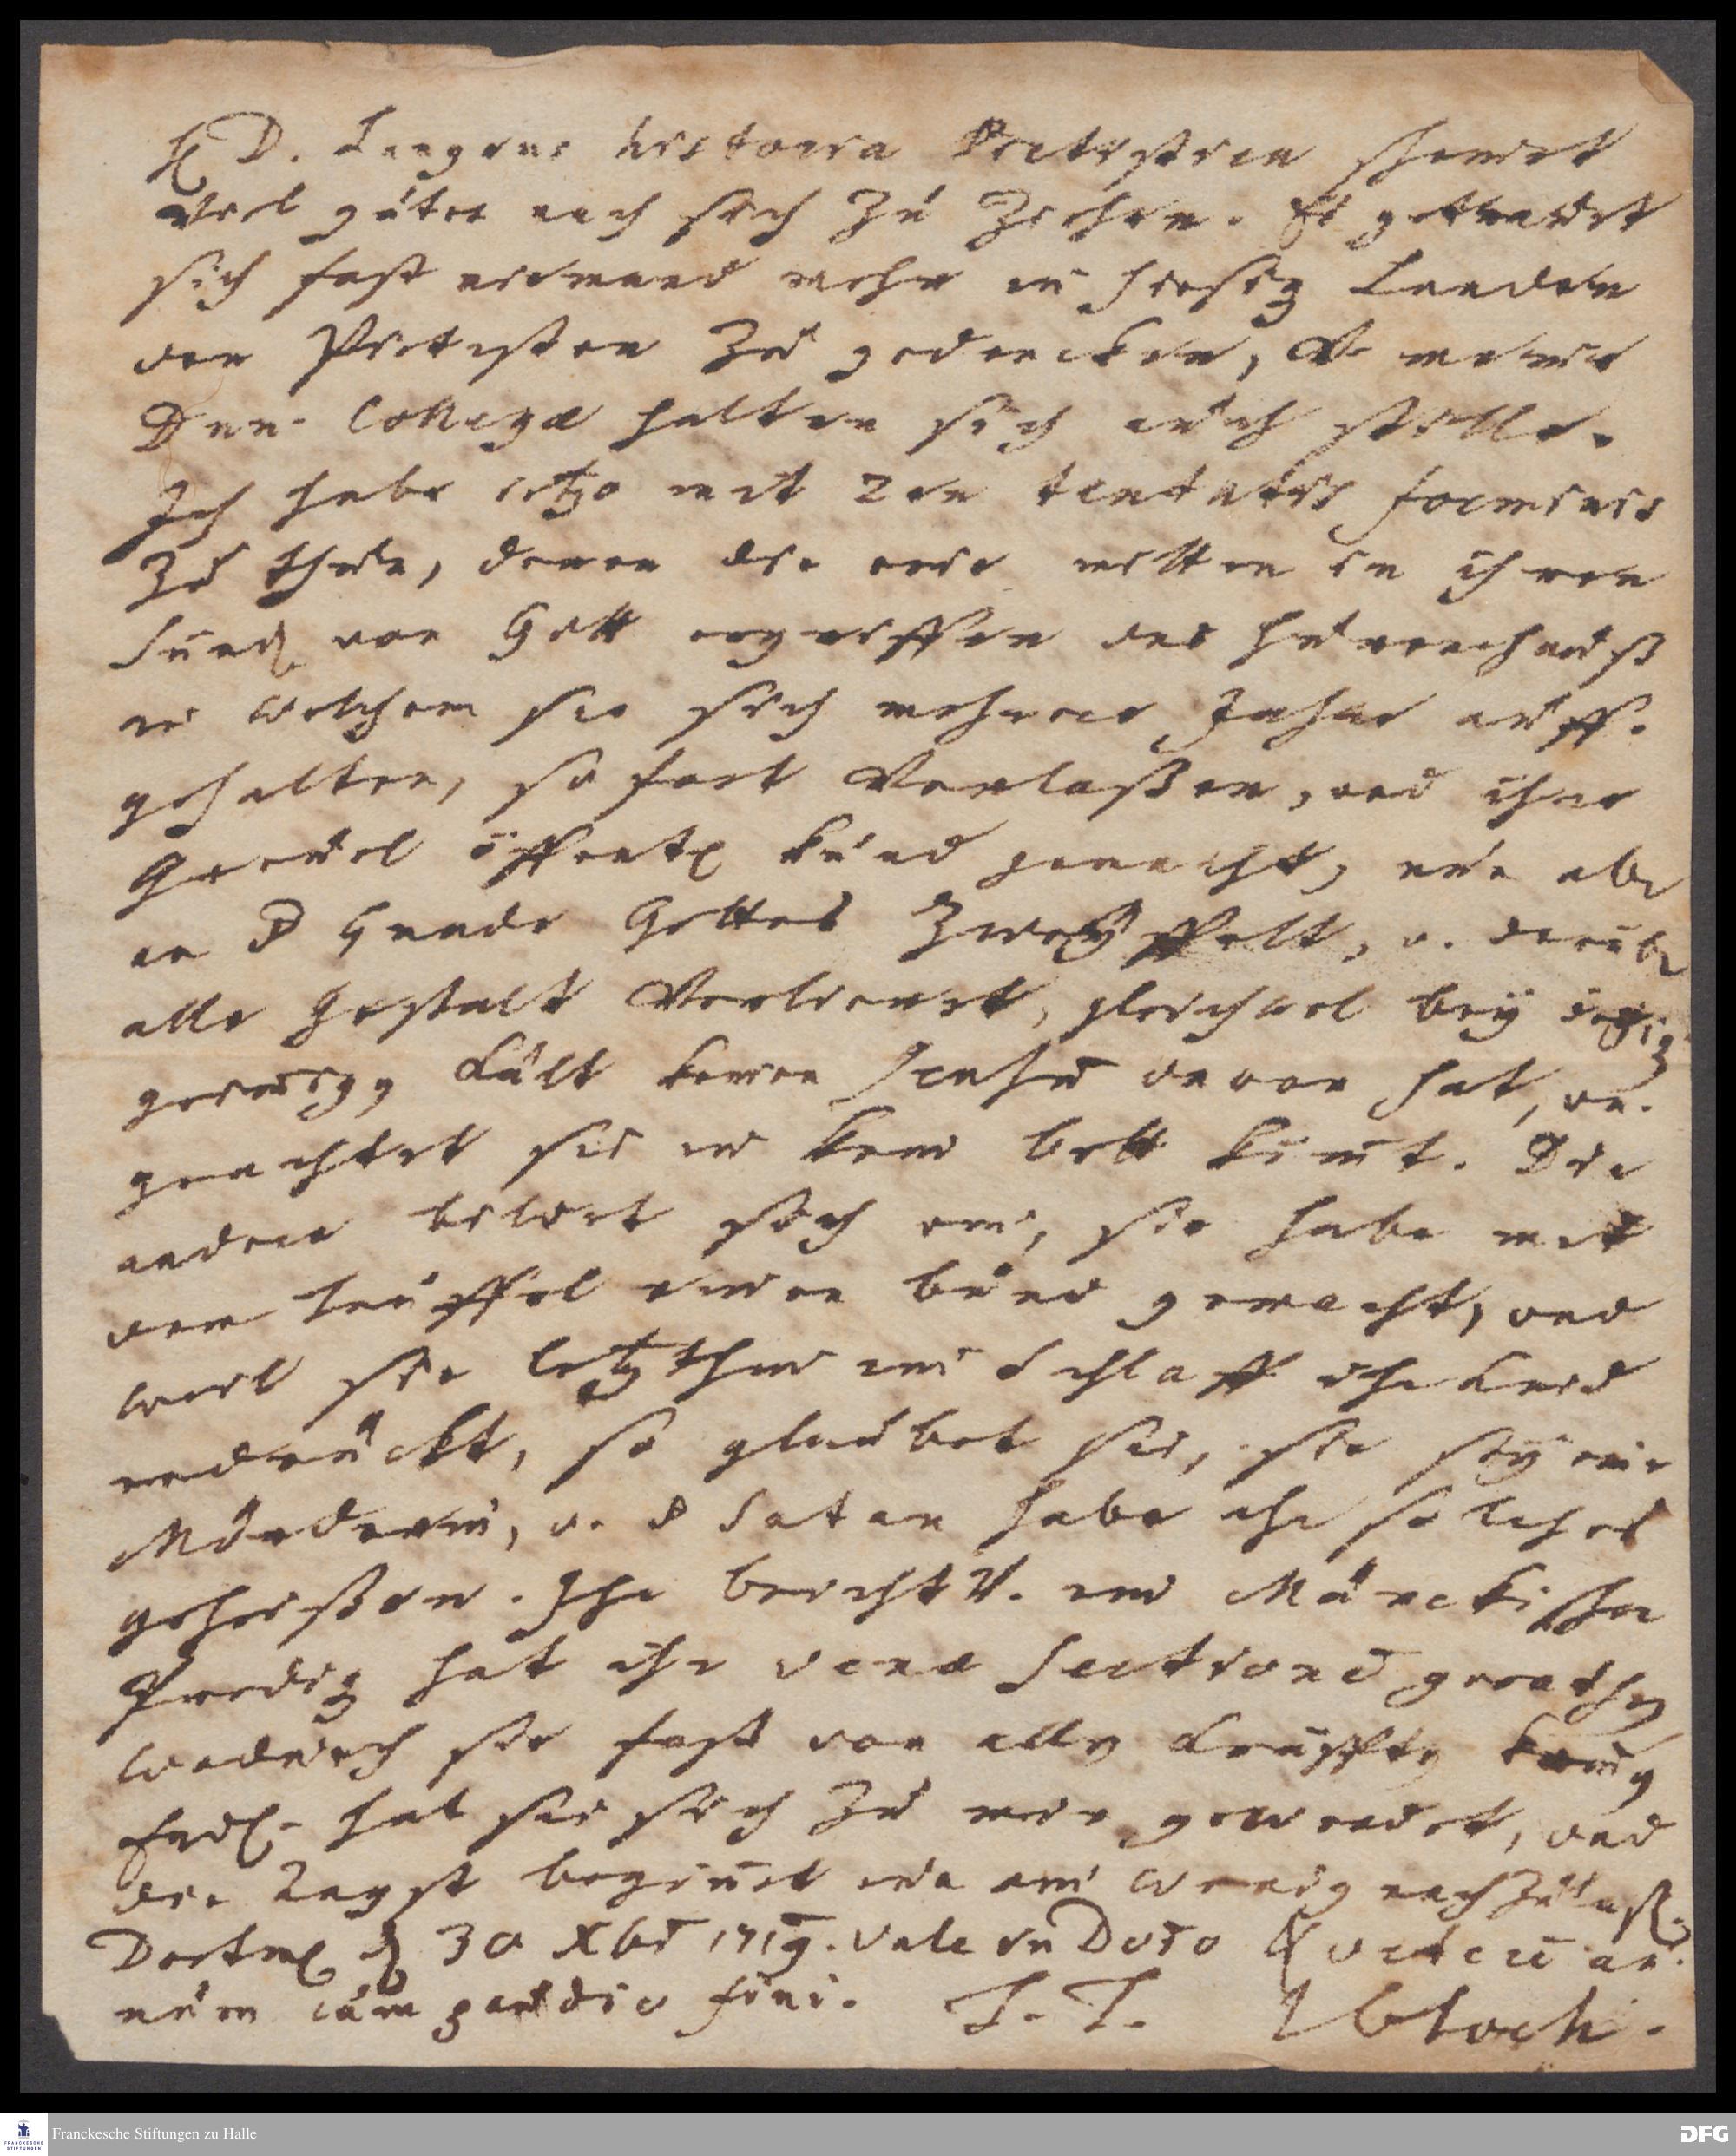 H. D. Langens historia Pietistica scheinet
viel gutes nach sich zu ziehen. Es getrauet
sich fast niemand mehr in hiesig Landen
der Pietisten zu gedencken, v. meine
Dnn. Collegae halten sich auch stille.
Ich habe ietzo mit 2en tentatis foeminis
zu thun, denen die eine mitten in ihren
Sünd von Gott ergriffen das Hurenhauß
in welchem sie sich mehrere Jahre auff-
gehalten, so fort verlaßen, und ihre
Greuel öffentl kund gemacht, nun aber
an d Gnade Gottes zweiffelt, v. darüber
alle Gestalt verliehret, gleichwol bey
Kält keinen davon hat, un-
geachtet sie in kein bett kömt. Die
andere bildet sich ein, sie habe mit
dem teuffel einen bund gemacht, und
weil sie letzthin im Schlaff ihr Kind
erdrückt, so glaubet sie, sie sey eine
Mörderin, v. d Satan habe ihr solches
geheißen. Ihr beichtV. ein Märckischer
Prediger hat ihr venae sectionem gerathen
wodurch sie fast von allen Kräfften kommen
Endl. hat sie sich zu mir gewendet, und
die Angst beginnet nun ein wenig nachzulaßen
Dortm d 30 Xbr 1719. Vale in Dno
num cum gaudio fini. T. T. Vbloch.